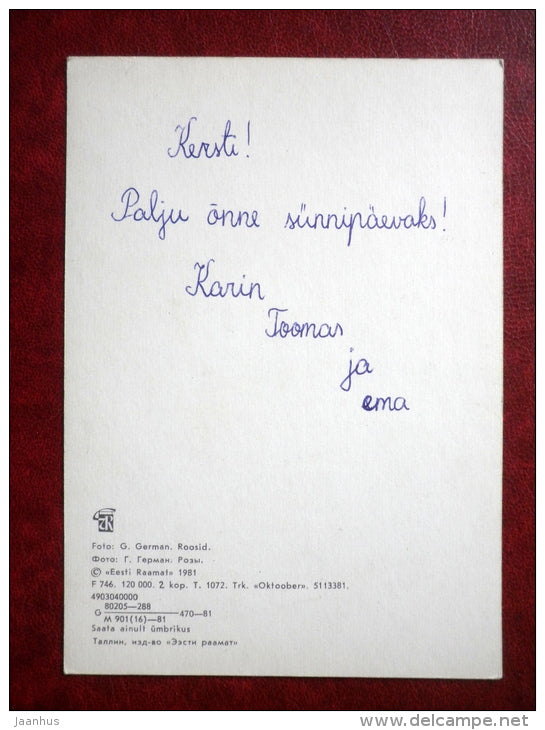 Kersti!
Palju õnne sünnipäevaks!
Karin
Toomas
ja
ema
Foto: G. German. Roosid.
Фото: Г. Герман. Розы.
© «Eesti Raamat» 1981
F 746. 120 000. 2 kop. T. 1072. Trk. «Oktoober». 5113381.
4903040000
G 80205—288
М 901(16)—81 470—81
Saata ainult ümbrikus
Таллин, изд-во «Ээсти раамат»
jaanhus
www.delcampe.net